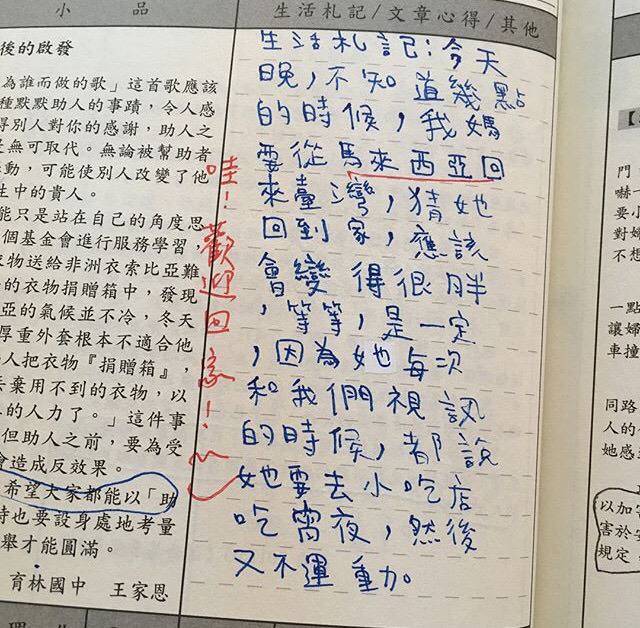 小品
後的啟發
為誰而做的歌」這首歌應該
種默默助人的事蹟，令人感
得別人對你的感謝，助人之
是無可取代。無論被幫助者
動，可能使別人改變了他
生中的貴人。
能只是站在自己的角度思
個基金會進行服務學習，
衣物送給非洲衣索比亞難
的衣物捐贈箱中，發現
亞的氣候並不冷，冬天
厚重外套根本不適合他
人把衣物『捐贈箱』，
丟棄用不到的衣物，以
的人力了。」這件事
但助人之前，要為受
會造成反效果。
希望大家都能以「助
時也要設身處地考量
舉才能圓滿。
育林國中 王家恩
生活札記/文章心得/其他
生活札記：今天
晚，不知道幾點
的時候，我媽
要從馬來西亞回
來臺灣，猜她
回到家，應該
會變得很胖
，等等，是一定
，因為她每次
和我們視訊
的時候，都說
她要去小吃店
吃宵夜，然後
又不運動。
哇！歡迎回家！
門
嚇
要
對婦
不想
一點
讓婦
車撞
同路
人的
她感
以加害
害於安
規定，